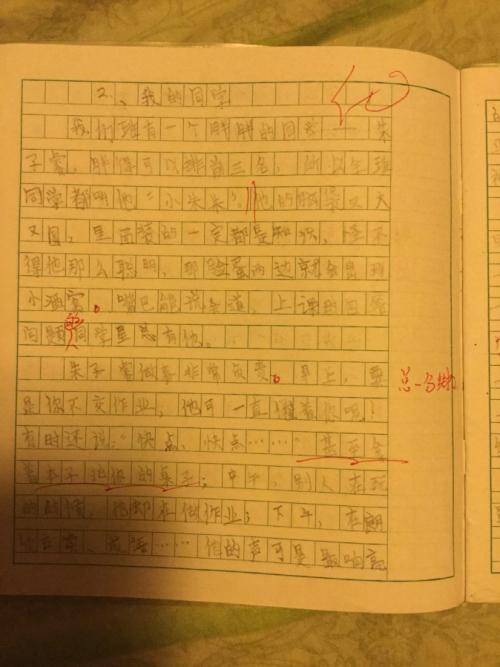 2、我的同学
我们班有一个胖胖的同学——朱
子睿,胖得可以排前三名,所以全班
同学都叫他“小朱朱”。他的脑袋又大
又圆,里面装的一定都是知识,怪不
得他那么聪明。那脸蛋两边就会出现
小酒窝。嘴巴能说会道,上课时回答
问题的同学里总有他。
人
朱子睿做事非常负责。早上,要
是你不交作业,他可一直催着你呢!
有时还说:“快点,快点……”甚至会
拿本子拍你的桌子;中午,别人在玩
的时候,他却在做作业;下午,在朗
……他的声可是最响亮
总一分结构